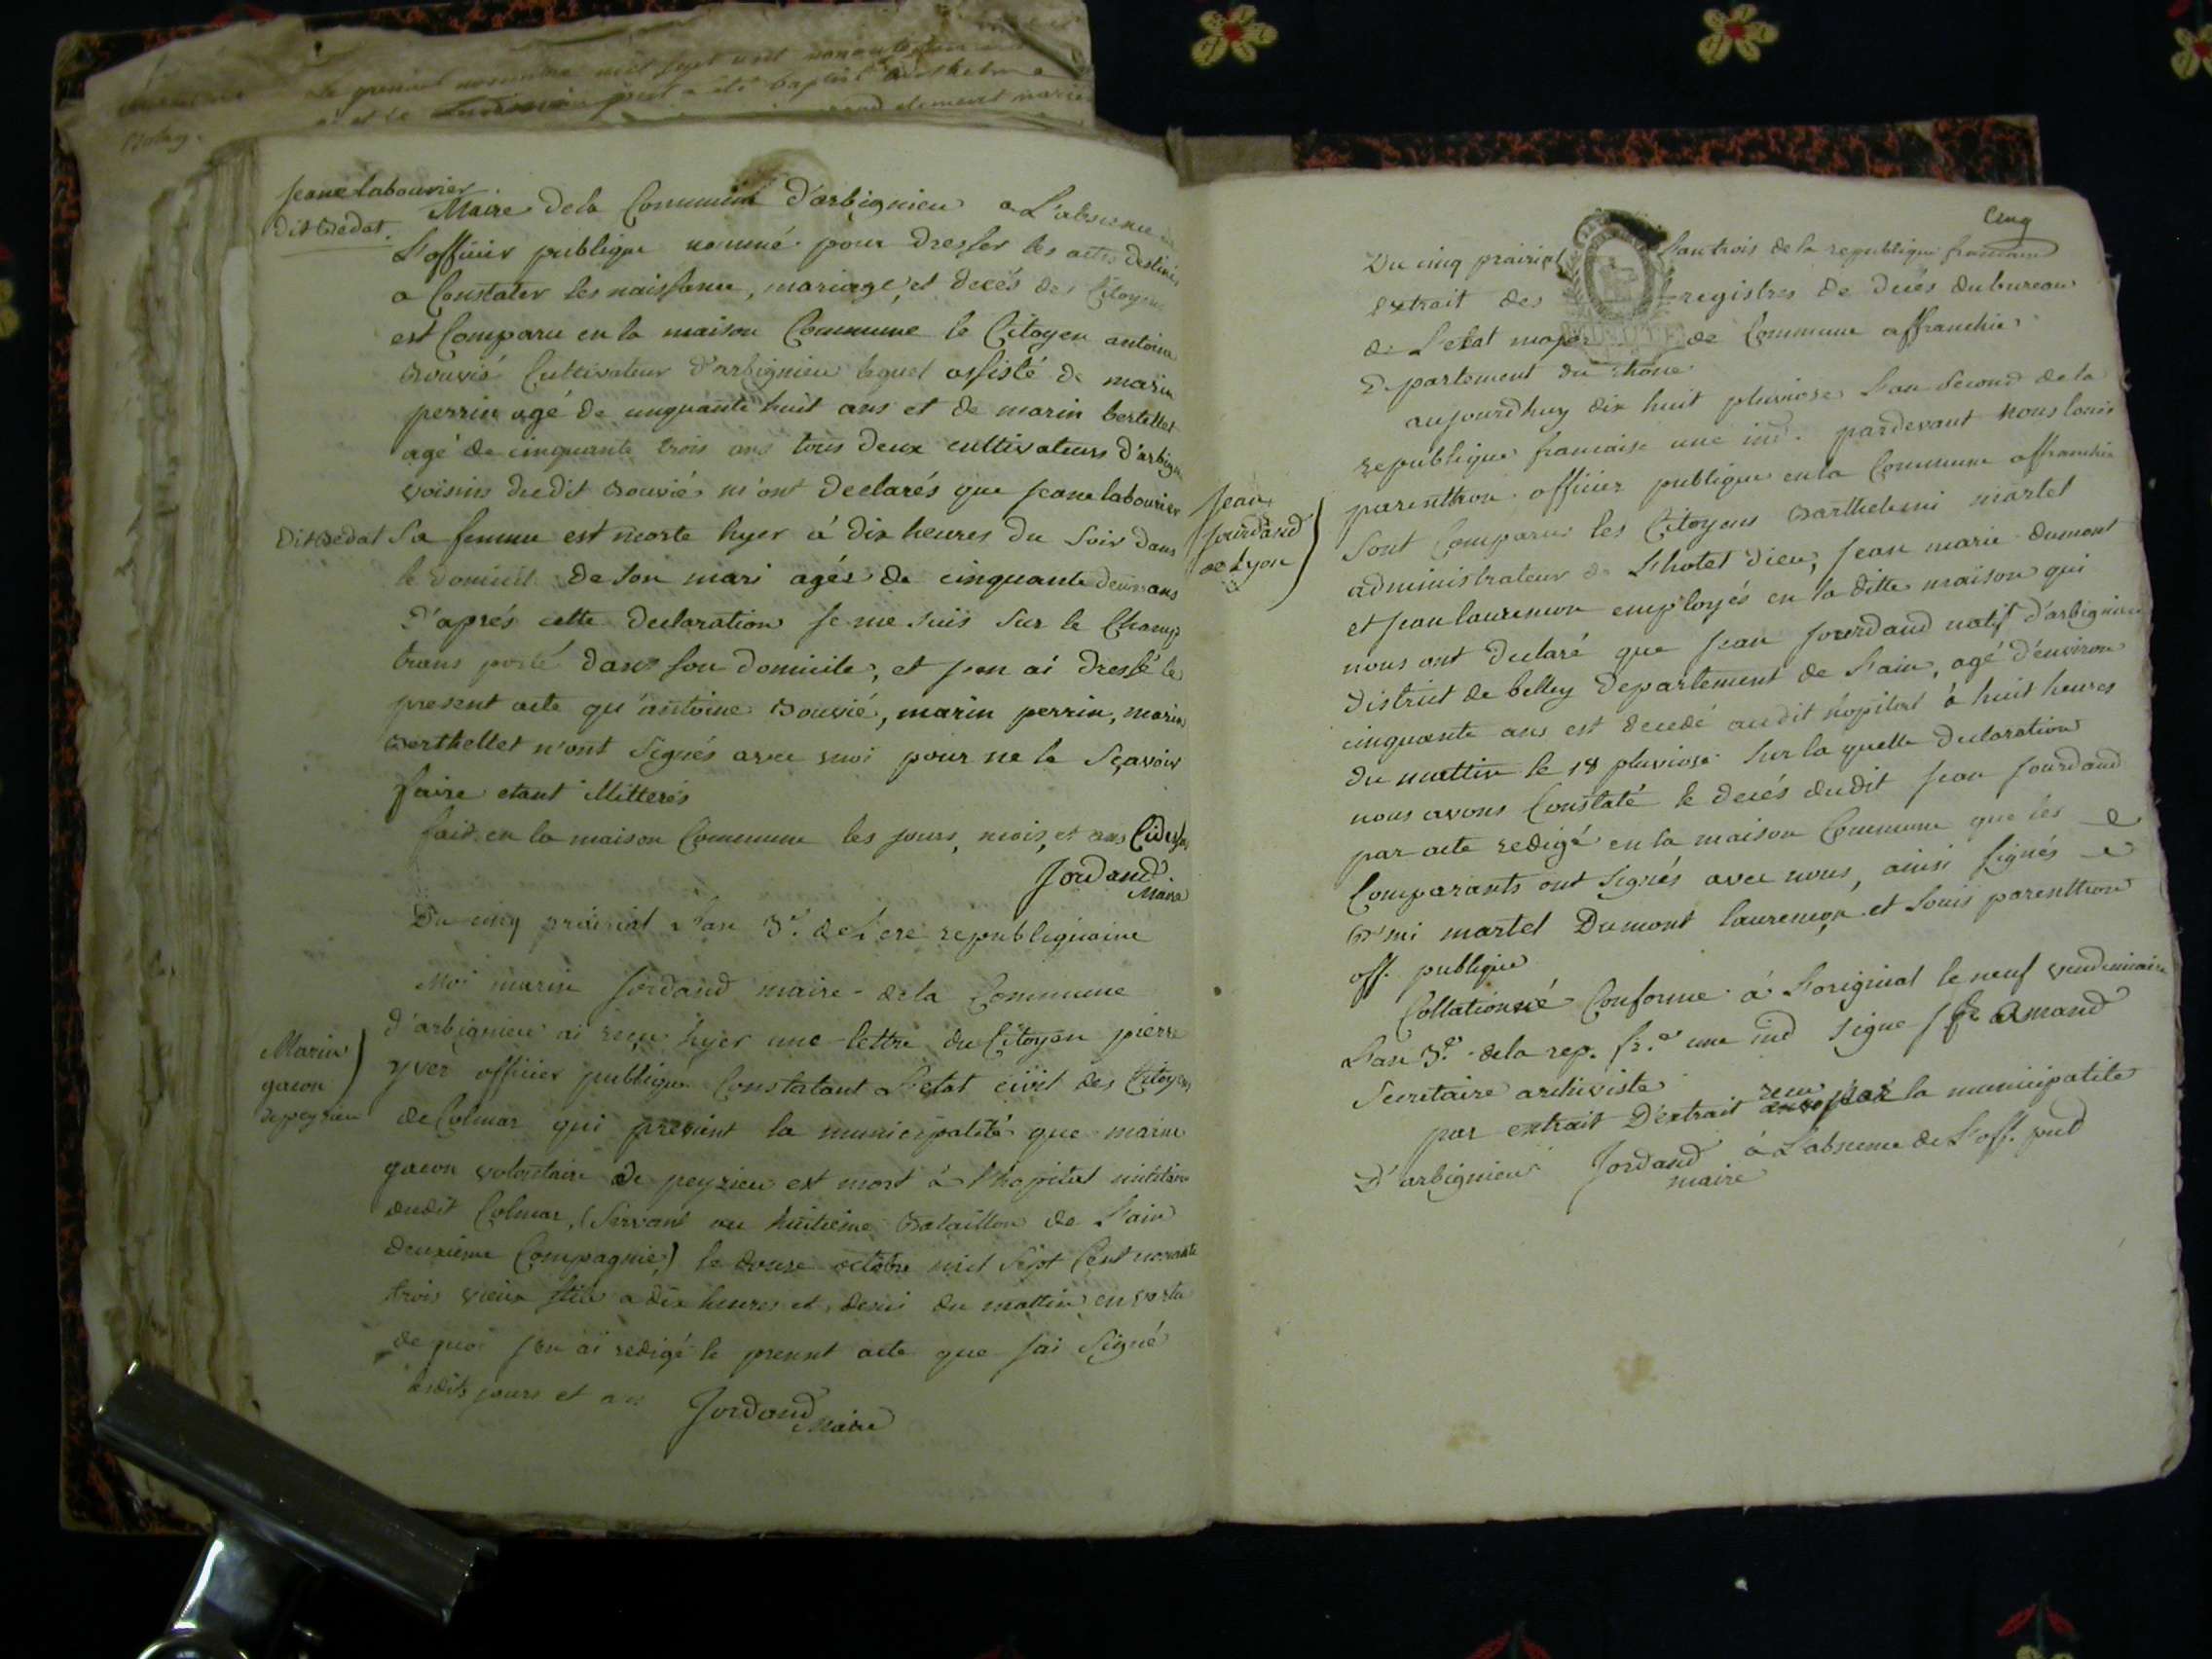 Le premier novembre mil sept cent nonante
a été baptisé
marie
Jeane labourier
dit Bedat.
Maire de la Commune d'arbignieu a L'absence de
L'officier publique nommé pour dresser les actes destinés
a Constater les naissance, mariage, et decés des Citoyens
est Comparu en la maison Commune le Citoyen antoine
Bouvié Cultivateur d'arbignieu lequel assisté de marin
perrin agé de cinquante huit ans et de marin bertellet
agé de cinquante trois ans tous deux cultivateurs d'arbig
voisins dudit Bouvié m'ont declarés que Jeane labourier
Dit Bedat Sa femme est morte hyer à dix heures du Soir dans
le domicil de son mari agée de cinquante deux ans
D'aprés cette declaration Je me suis Sur le Champ
trans porté dans son domicile, et J'en ai dressé le
present acte qu'antoine Bouvié, marin perrin, marin
Berthellet n'ont Signés avec moi pour ne le Sçavoir
faire etant illitterés
fait en la maison Commune les jours, mois, et ans Cidessus
Jordand
Maire
Du cinq prairial L'an 3e. de L'ere republiquaine
Marin
gacon
de peyzieu
Moi marin Jordand maire de la Commune
d'arbignieu ai reçu hyer une lettre du Citoyen pierre
yver officier publique Constatant L'etat civil des Citoyens
de Colmar qui previent la municipalité que marin
gacon volontaire de peyzieu est mort à l'hopital militaire
dudit Colmar, (Servant au huitieme Bataillon de L'ain
deuxieme Compagnie) le douze octobre mil Sept Cent nonante
trois vieux stile a dix heures et demi du mattin en vertu
de quoi J'en ai redigé le present acte que J'ai Signé
lesdits jours et an
Jordand
Maire
Cinq
Du cinq prairial L'an trois de la republique francaise
Extrait des registres de decés du bureau
de L'etat major de Commune affranchie
Departement du Rhône
Jean
Jourdand
de Lyon
aujourdhuy dix huit pluviose L'an Second de la
republique francaise une ind. pardevant nous louis
parenthon officier publique en la Commune affranchie
Sont Comparus les Citoyens Barthelemi martel
administrateur de L'hotel dieu, Jean marie dumont
et Jean laurencon employés en la ditte maison qui
nous ont declaré que Jean Jourdand natif d'arbignieu
District de belley Departement de L'ain, agé d'environ
cinquante ans est decedé audit hopital à huit heures
du mattin le 18 pluviose Sur la quelle declaration
nous avons Constaté le decés dudit Jean Jourdand
par acte redigé en la maison Commune que les
Comparants ont signés avec nous, ainsi signés
B'mi martel Dumont laurencon, et Louis parenthon
off. publique
Collationné Conforme à L'original le neuf vendemiaire
L'an 3e. de la rep. fr.e une ind signe Amand
Secretaire archiviste
par extrait D'extrait recu par la municipalite
D'arbignieu Jordand à L'absence de L'off. pub
maire